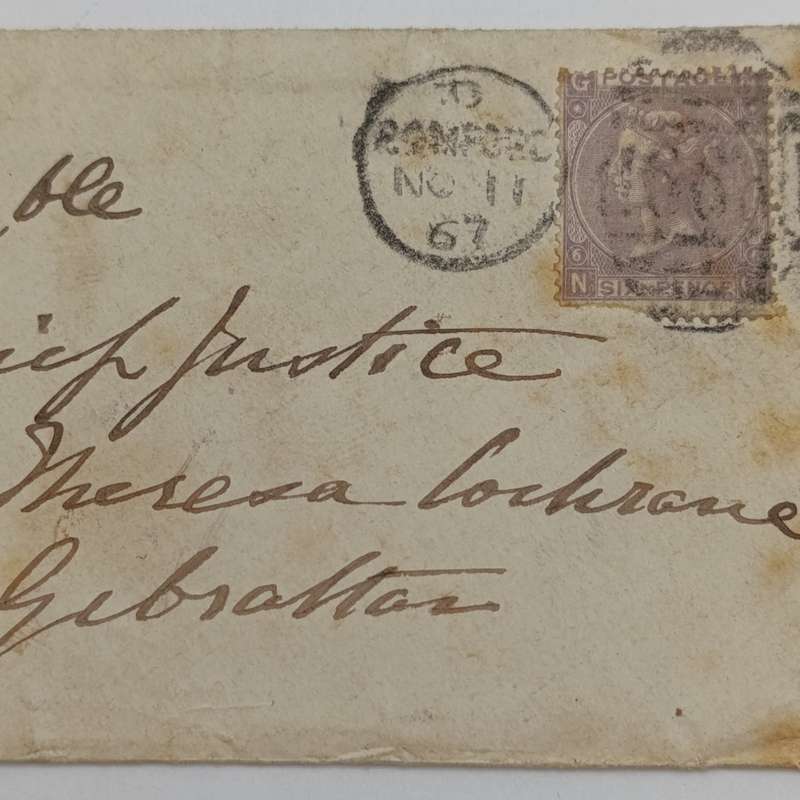 D
ROMFORD
NO 11
67
G POSTAGE
6
N SIX PENCE
ble
Justice
Theresa Cochrane
Gibraltar